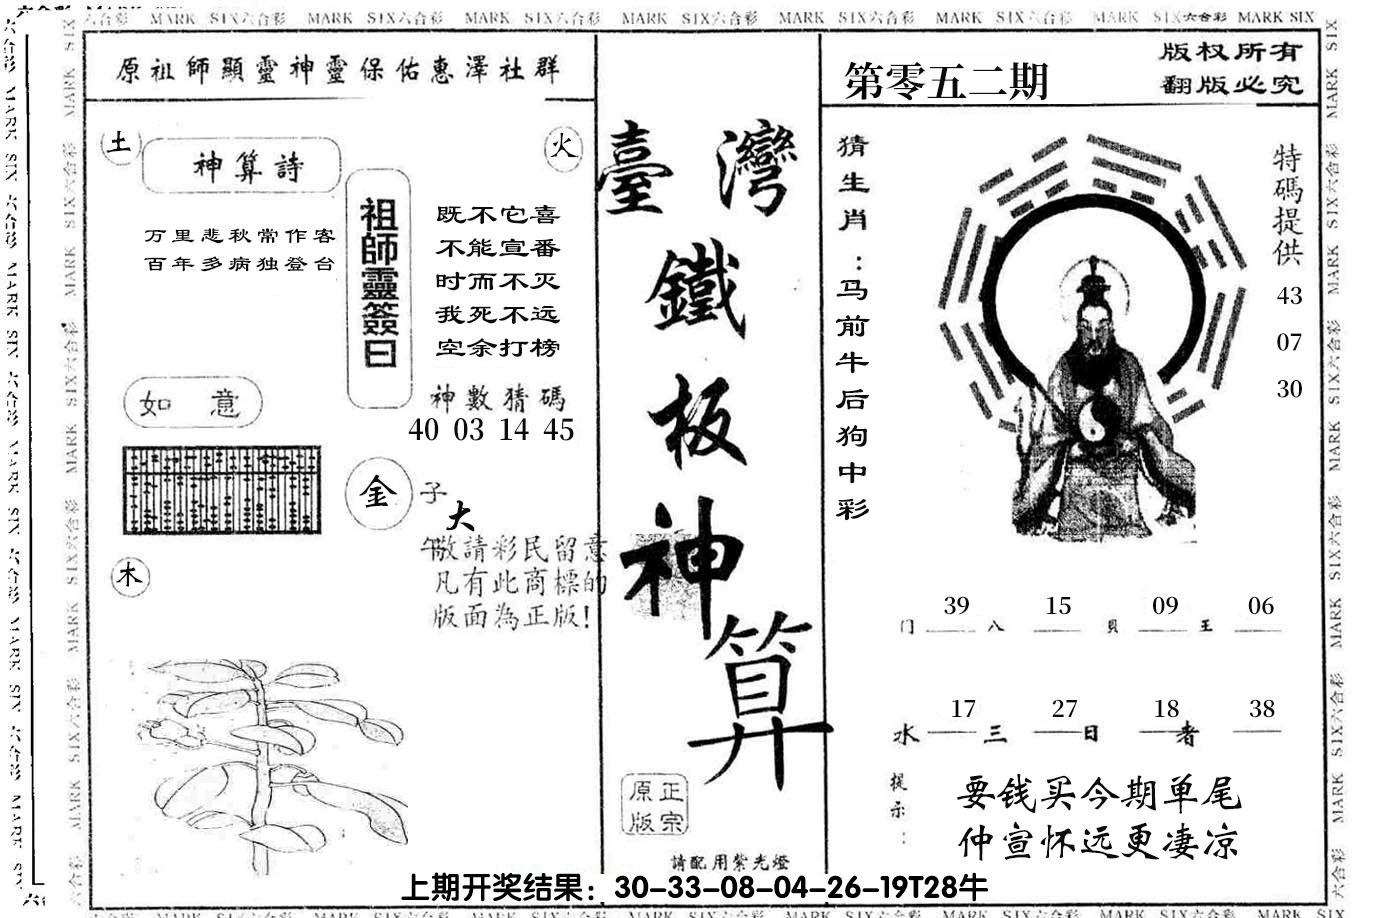 六合彩 MARK SIX六合彩 MARK SIX六合彩 MARK SIX六合彩 MARK SIX六合彩 MARK SIX六合彩 MARK SIX六合彩 MARK SIX六合彩 MARK SIX
原祖師顯靈神靈保佑惠澤社群
土
神算詩
火
万里悲秋常作客
百年多病独登台
祖師靈簽曰
既不它喜
不能宣番
时而不灭
我死不远
空余打榜
神數猜碼
40 03 14 45
如意
金
子
大
午
敬請彩民留意
凡有此商標的
版面為正版!
木
臺灣
鐵
板
神
算
原正
版宗
請配用紫光燈
第零五二期
版权所有
翻版必究
猜生肖:马前牛后狗中彩
特碼提供
43
07
30
39 15 09 06
门 八 貝 王
17 27 18 38
水 三 日 者
提示:
要钱买今期单尾
仲宣怀远更凄凉
上期开奖结果：30-33-08-04-26-19T28牛